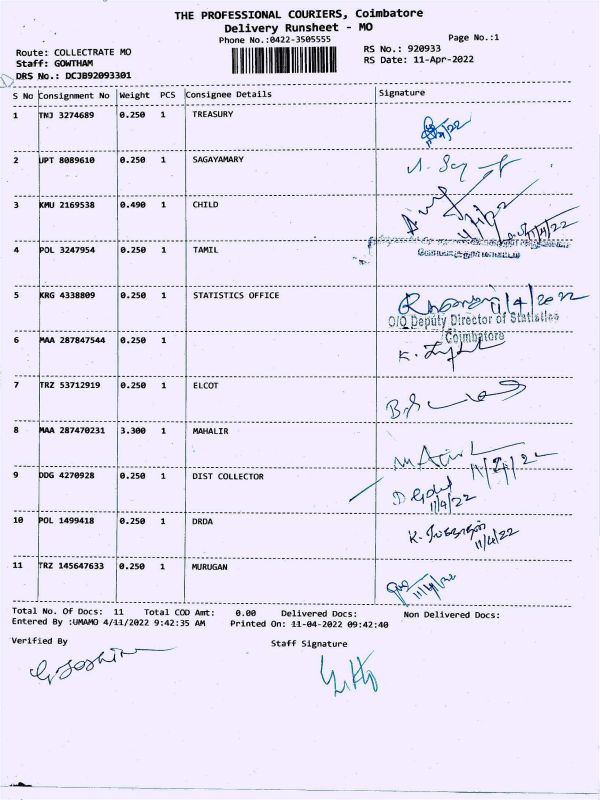 THE PROFESSIONAL COURIERS, Coimbatore
Delivery Runsheet - MO
Phone No.:0422-3505555
Page No.:1
Route: COLLECTRATE MO
RS No.: 920933
Staff: GOWTHAM
RS Date: 11-Apr-2022
DRS No.: DCJB92093301
S No Consignment No Weight PCS Consignee Details Signature
1 TNJ 3274689 0.250 1 TREASURY
2 UPT 8089610 0.250 1 SAGAYAMARY
3 KMU 2169538 0.490 1 CHILD
11/4/22
4 POL 3247954 0.250 1 TAMIL
5 KRG 4338809 0.250 1 STATISTICS OFFICE
11/4/2022
O/O Deputy Director of Statistics
Coimbatore
6 MAA 287847544 0.250 1
7 TRZ 53712919 0.250 1 ELCOT
8 MAA 287470231 3.300 1 MAHALIR
11/4/22
9 DDG 4270928 0.250 1 DIST COLLECTOR
11/4/22
10 POL 1499418 0.250 1 DRDA
11/4/22
11 TRZ 145647633 0.250 1 MURUGAN
11/4/22
Total No. Of Docs: 11 Total COD Amt: 0.00 Delivered Docs: Non Delivered Docs:
Entered By :UMAMO 4/11/2022 9:42:35 AM Printed On: 11-04-2022 09:42:40
Verified By Staff Signature